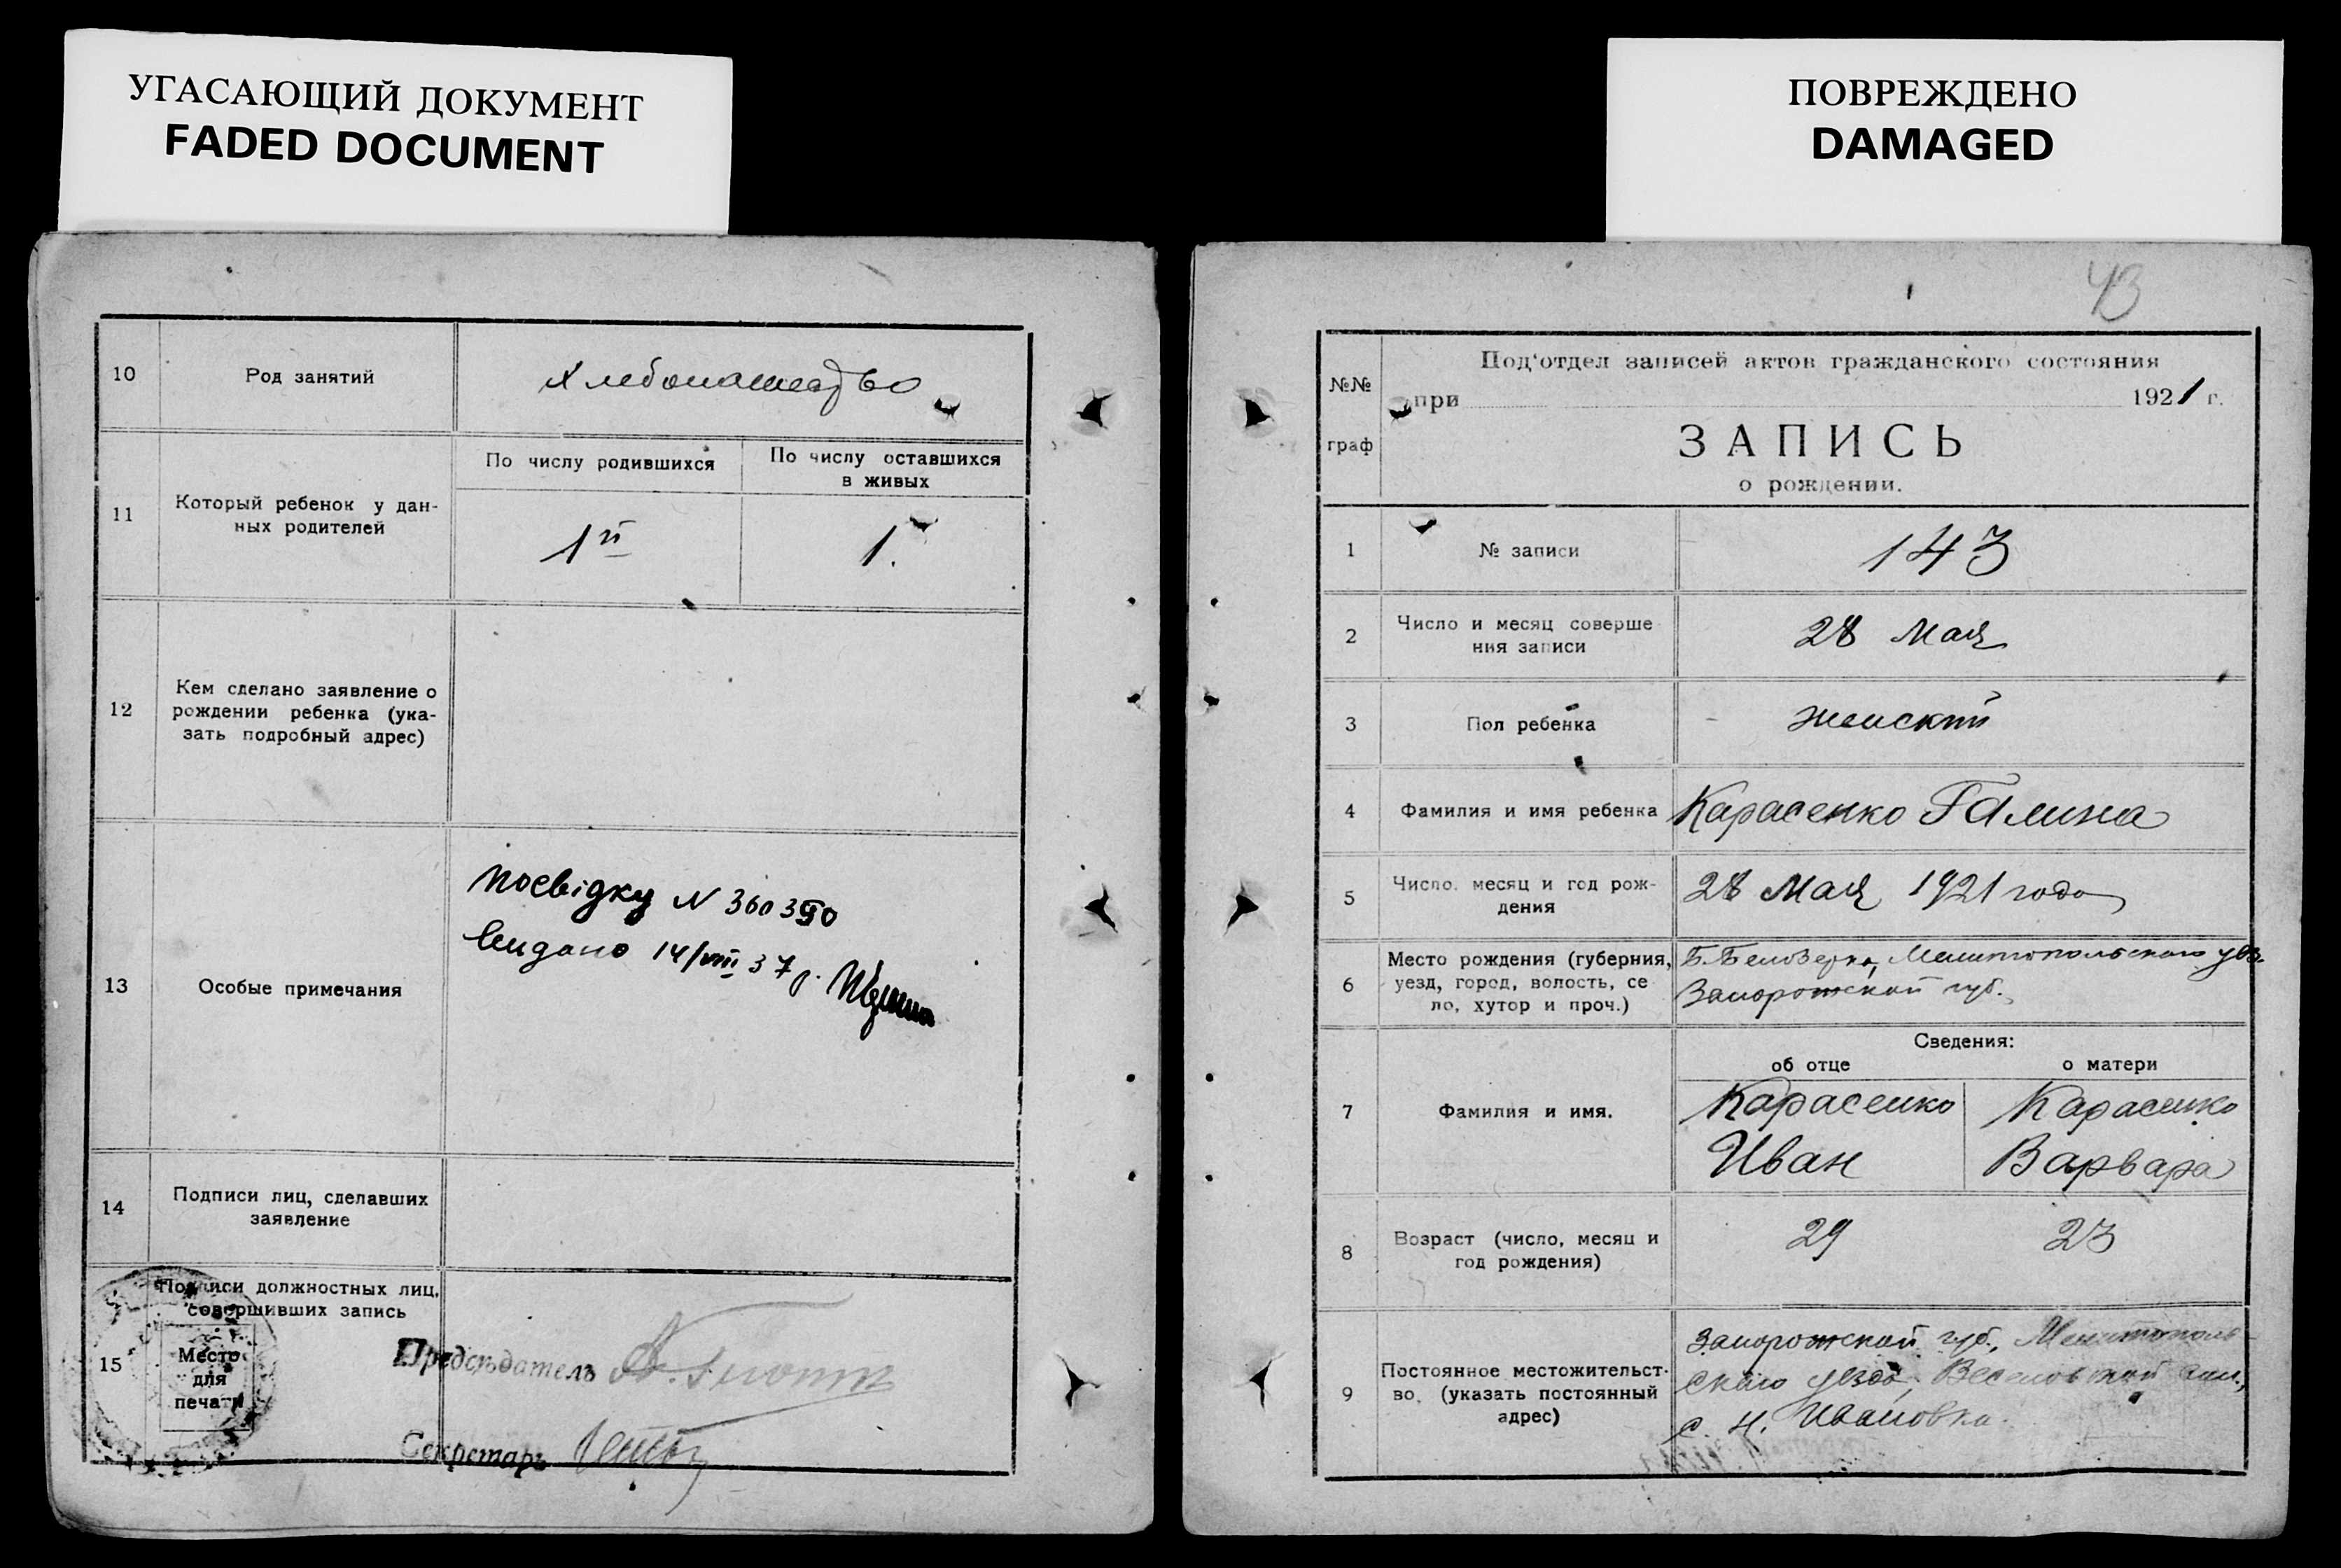 УГАСАЮЩИЙ ДОКУМЕНТ
FADED DOCUMENT
ПОВРЕЖДЕНО
DAMAGED
10
Род занятий
Хлебопашество
11
Который ребенок у дан-
ных родителей
По числу родившихся
1й
По числу оставшихся
в живых
1.
12
Кем сделано заявление о
рождении ребенка (ука-
зать подробный адрес)
13
Особые примечания
Посвідку N 360390
видано 14/VIII 37 р.
14
Подписи лиц, сделавших
заявление
15
Подписи должностных лиц,
совершивших запись
Место
для
печати
Председатель
Секретарь
43
№№
граф
Под'отдел записей актов гражданского состояния
при 1921 г.
ЗАПИСЬ
о рождении.
1
№ записи
143
2
Число и месяц соверше
ния записи
28 Мая
3
Пол ребенка
женский
4
Фамилия и имя ребенка
Карасенко Галина
5
Число. месяц и год рож-
дения
28 Мая 1921 года
6
Место рождения (губерния,
уезд, город, волость, се
ло, хутор и проч.)
Б. Белозерка, Мелитопольского уез.
Запорожской губ.
Сведения:
об отце
о матери
7
Фамилия и имя.
Карасенко
Иван
Карасенко
Варвара
8
Возраст (число, месяц и
год рождения)
29
23
9
Постоянное местожительст-
во. (указать постоянный
адрес)
Запорожской губ., Мелитополь-
скаго уезда, Веселовской вол.,
с. Н. Ивановка.